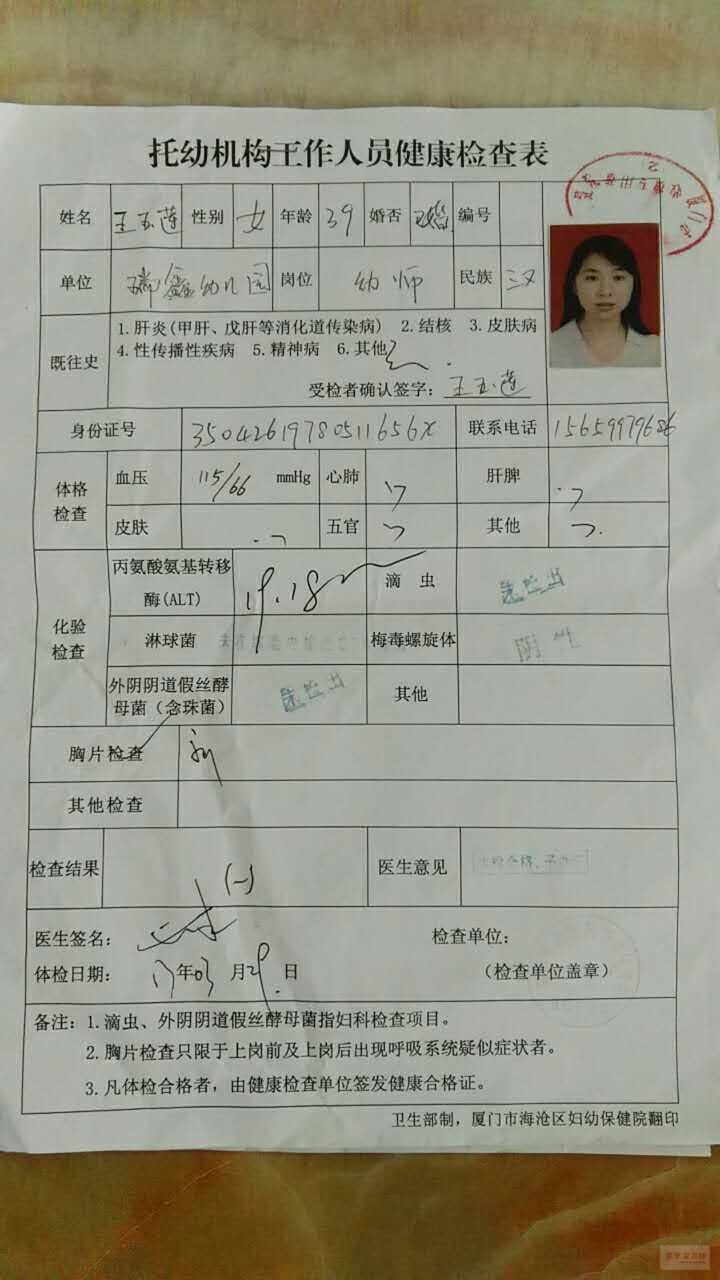 托幼机构工作人员健康检查表
姓名 王玉莲 性别 女 年龄 39 婚否 已婚 编号
单位 瑞鑫幼儿园 岗位 幼师 民族 汉
既往史 1.肝炎(甲肝、戊肝等消化道传染病) 2.结核 3.皮肤病
4.性传播性疾病 5.精神病 6.其他
受检者确认签字: 王玉莲
身份证号 35042619780511656X 联系电话 15659979686
体格检查 血压 115/66 mmHg 心肺 肝脾
皮肤 五官 其他
化验检查 丙氨酸氨基转移酶(ALT) 19.18 滴虫 未检出
淋球菌 梅毒螺旋体 阴性
外阴阴道假丝酵母菌(念珠菌) 未检出 其他
胸片检查
其他检查
检查结果 (一) 医生意见
医生签名: 检查单位:
体检日期: 17年03月29日 (检查单位盖章)
备注: 1.滴虫、外阴阴道假丝酵母菌指妇科检查项目。
2.胸片检查只限于上岗前及上岗后出现呼吸系统疑似症状者。
3.凡体检合格者,由健康检查单位签发健康合格证。
卫生部制,厦门市海沧区妇幼保健院翻印